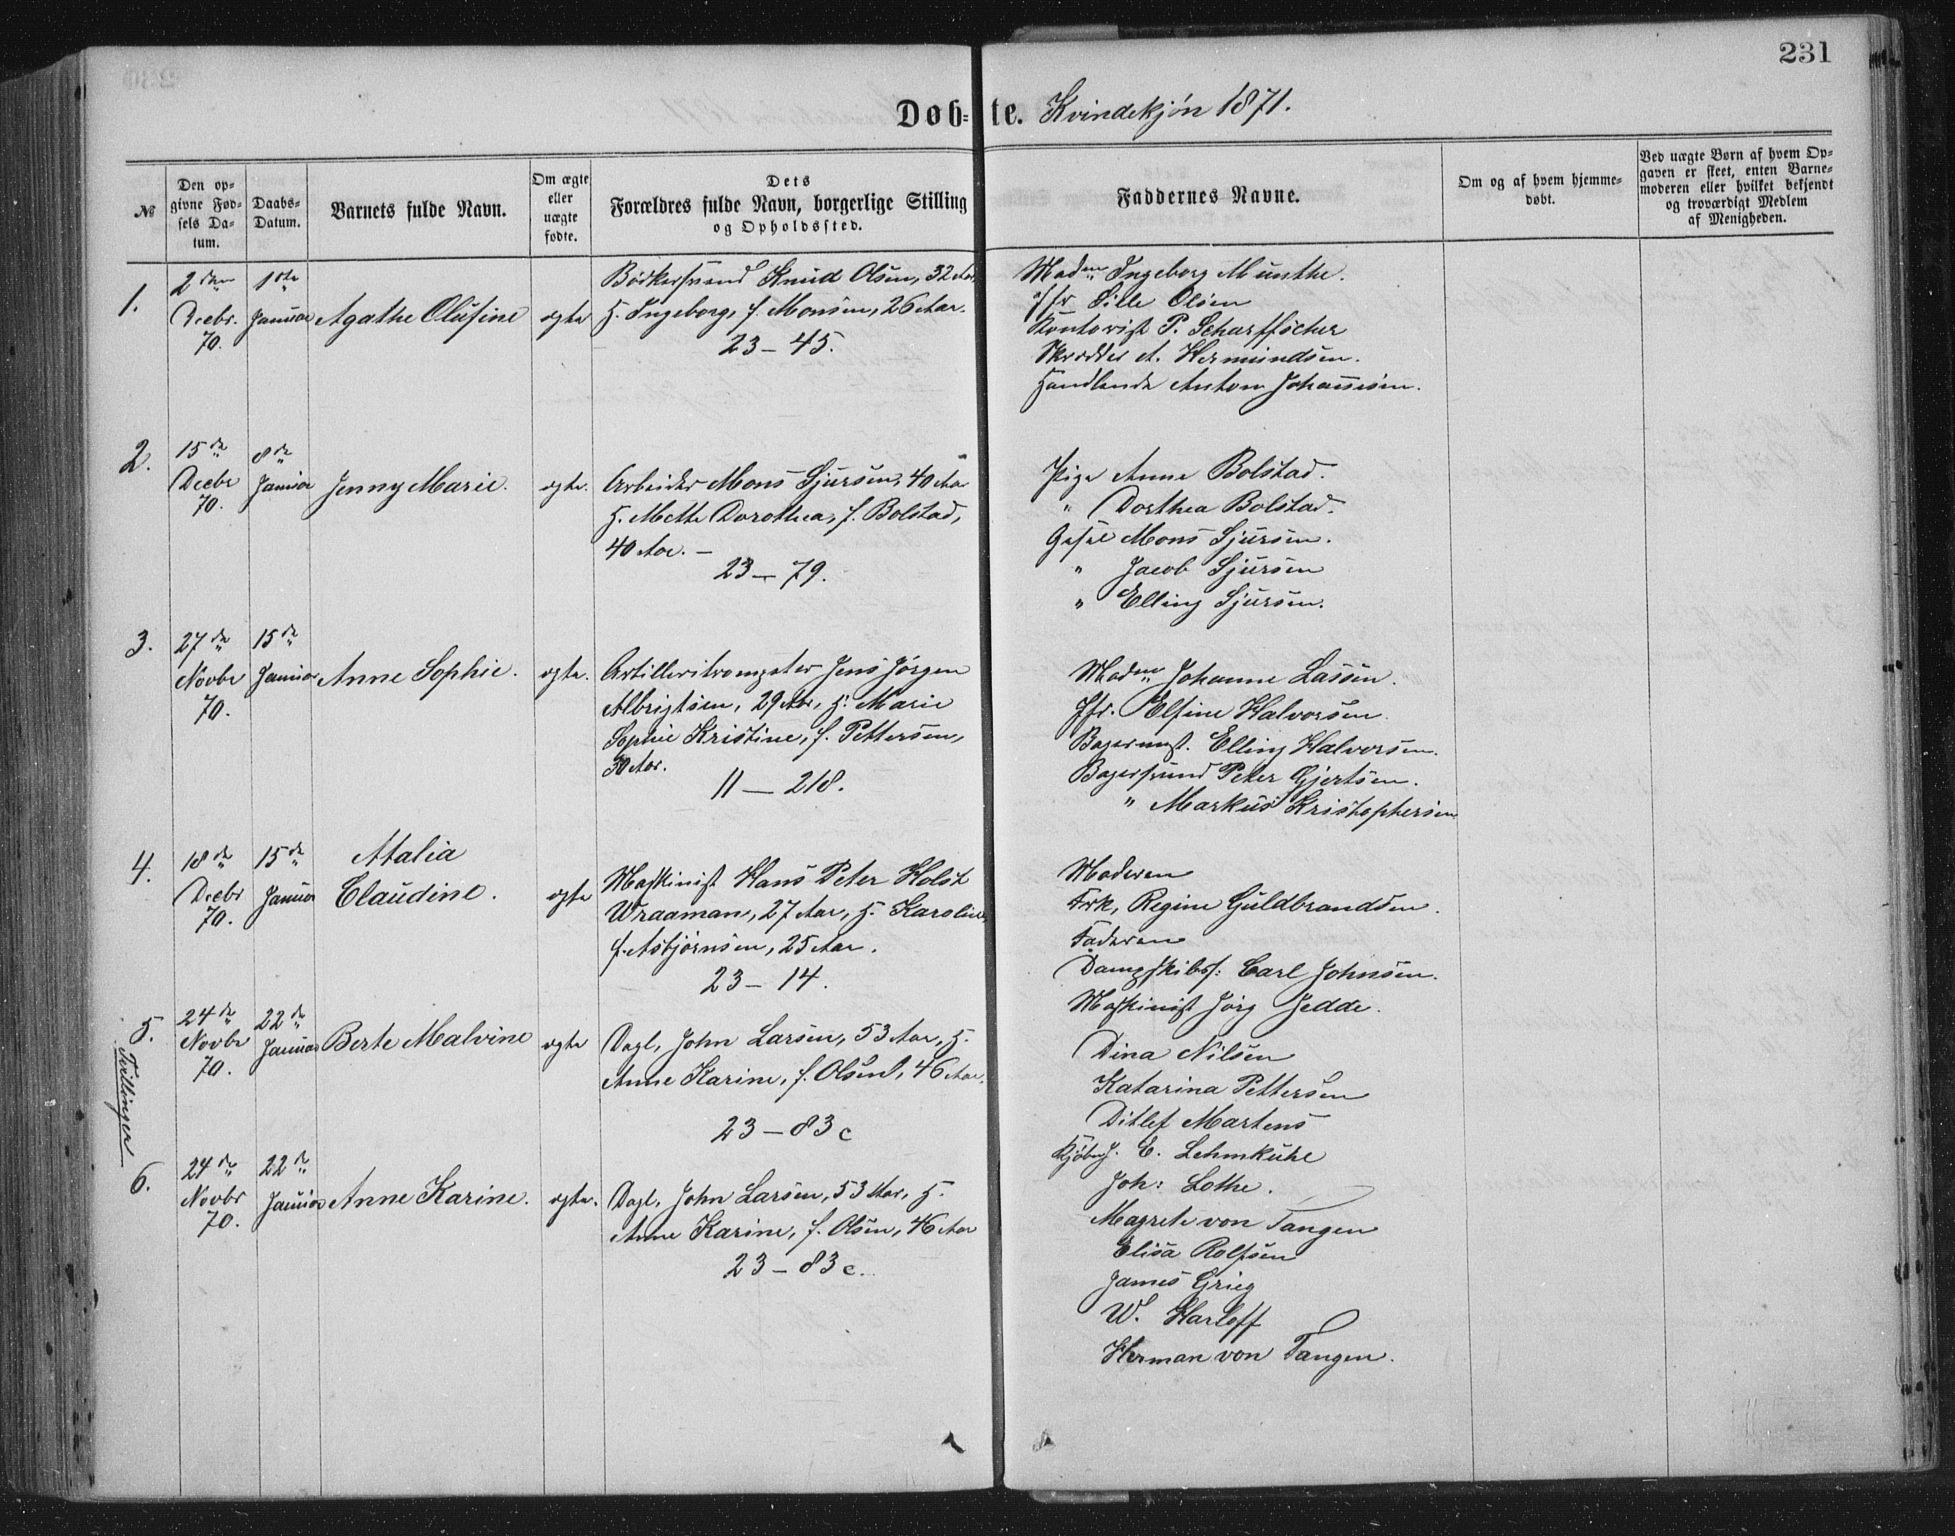 231
Døb-te. Kvindekjøn 1871.
№
Den op-
givne Fød-
sels Da-
tum.
Daabs-
Datum.
Barnets fulde Navn.
Om ægte
eller
uægte
fødte.
Dets
Forældres fulde Navn, borgerlige Stilling
og Opholdssted.
Faddernes Navne.
Om og af hvem hjemme-
døbt.
Ved uægte Børn af hvem Op-
gaven er skeet, enten Barne-
moderen eller hvilket bekjendt
og troværdigt Medlem
af Menigheden.
1.
2den
Decbr.
70.
1ste
Januar
Agathe Olufine
ægte
Bødkersvend Knud Olsen, 32 Aar
H. Ingeborg, f. Monsen, 26 Aar.
23 – 45.
Madm Ingeborg Munthe.
Jfr Sille Olsen
Kontorist P. Scharffscher
Skrædder A. Hermundsen.
Handlende Anton Johannesen.
2.
15de
Decbr
70.
8de
Januar
Jenny Marie.
ægte.
Arbeider Mons Sjursen, 40 Aar
H. Mette Dorothea, f. Bolstad,
40 Aar. –
23 – 79.
Pige Anne Bolstad.
" Dorthea Bolstad.
Gesel Mons Sjursen.
" Jacob Sjursen
" Elling Sjursen.
3.
27de
Novbr
70.
15de
Januar
Anne Sophie.
ægte.
Artilleritrompeter Jens Jørgen
Albrigtsen, 29 Aar, H. Marie
Sophie Kristine, f. Pettersen,
30 Aar.
11 – 218.
Madm Johanne Lassen.
Jfr. Elfine Halvorsen.
Bagermst. Elling Halvorsen.
Bagersvend Peter Gjertsen.
" Markus Kristophersen
4.
18de
Decbr
70.
15de
Januar
Atalia
Claudine.
ægte
Maskinist Hans Peter Holst
Wraaman, 27 Aar, H. Karoline
f. Asbjørnsen, 25 Aar.
23 – 14.
Moderen
Frk, Regine Guldbrandsen.
Faderen
Dampskibsf: Carl Johnsen.
Maskinist Jørg Jedde.
5.
Tvillinger
24de
Novbr
70.
22de
Januar
Berte Malvine
ægte
Dagl, John Larsen, 53 Aar, H.
Anne Karine, f. Olsen, 46 Aar.
23 – 83 c
Dina Nilsen
Katarina Pettersen
Ditlef Martens
Kjøbm. E. Lehmkuhl
Joh: Lothe.
6.
24de
Novbr
70.
22de
Januar
Anne Karine.
ægte.
Dagl, John Larsen, 53 Aar, H.
Anne Karine, f. Olsen, 46 Aar
23 – 83 c.
Magrete von Tangen
Elisa Rolfsen
James Grieg
W. Harloff
Herman von Tangen.